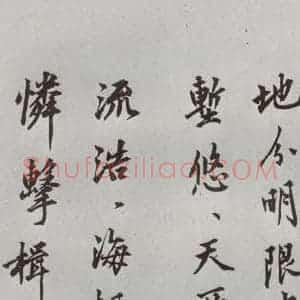 地分明限
塹悠、天
流浩、海
憐擊楫
ShufaZiliao.COM